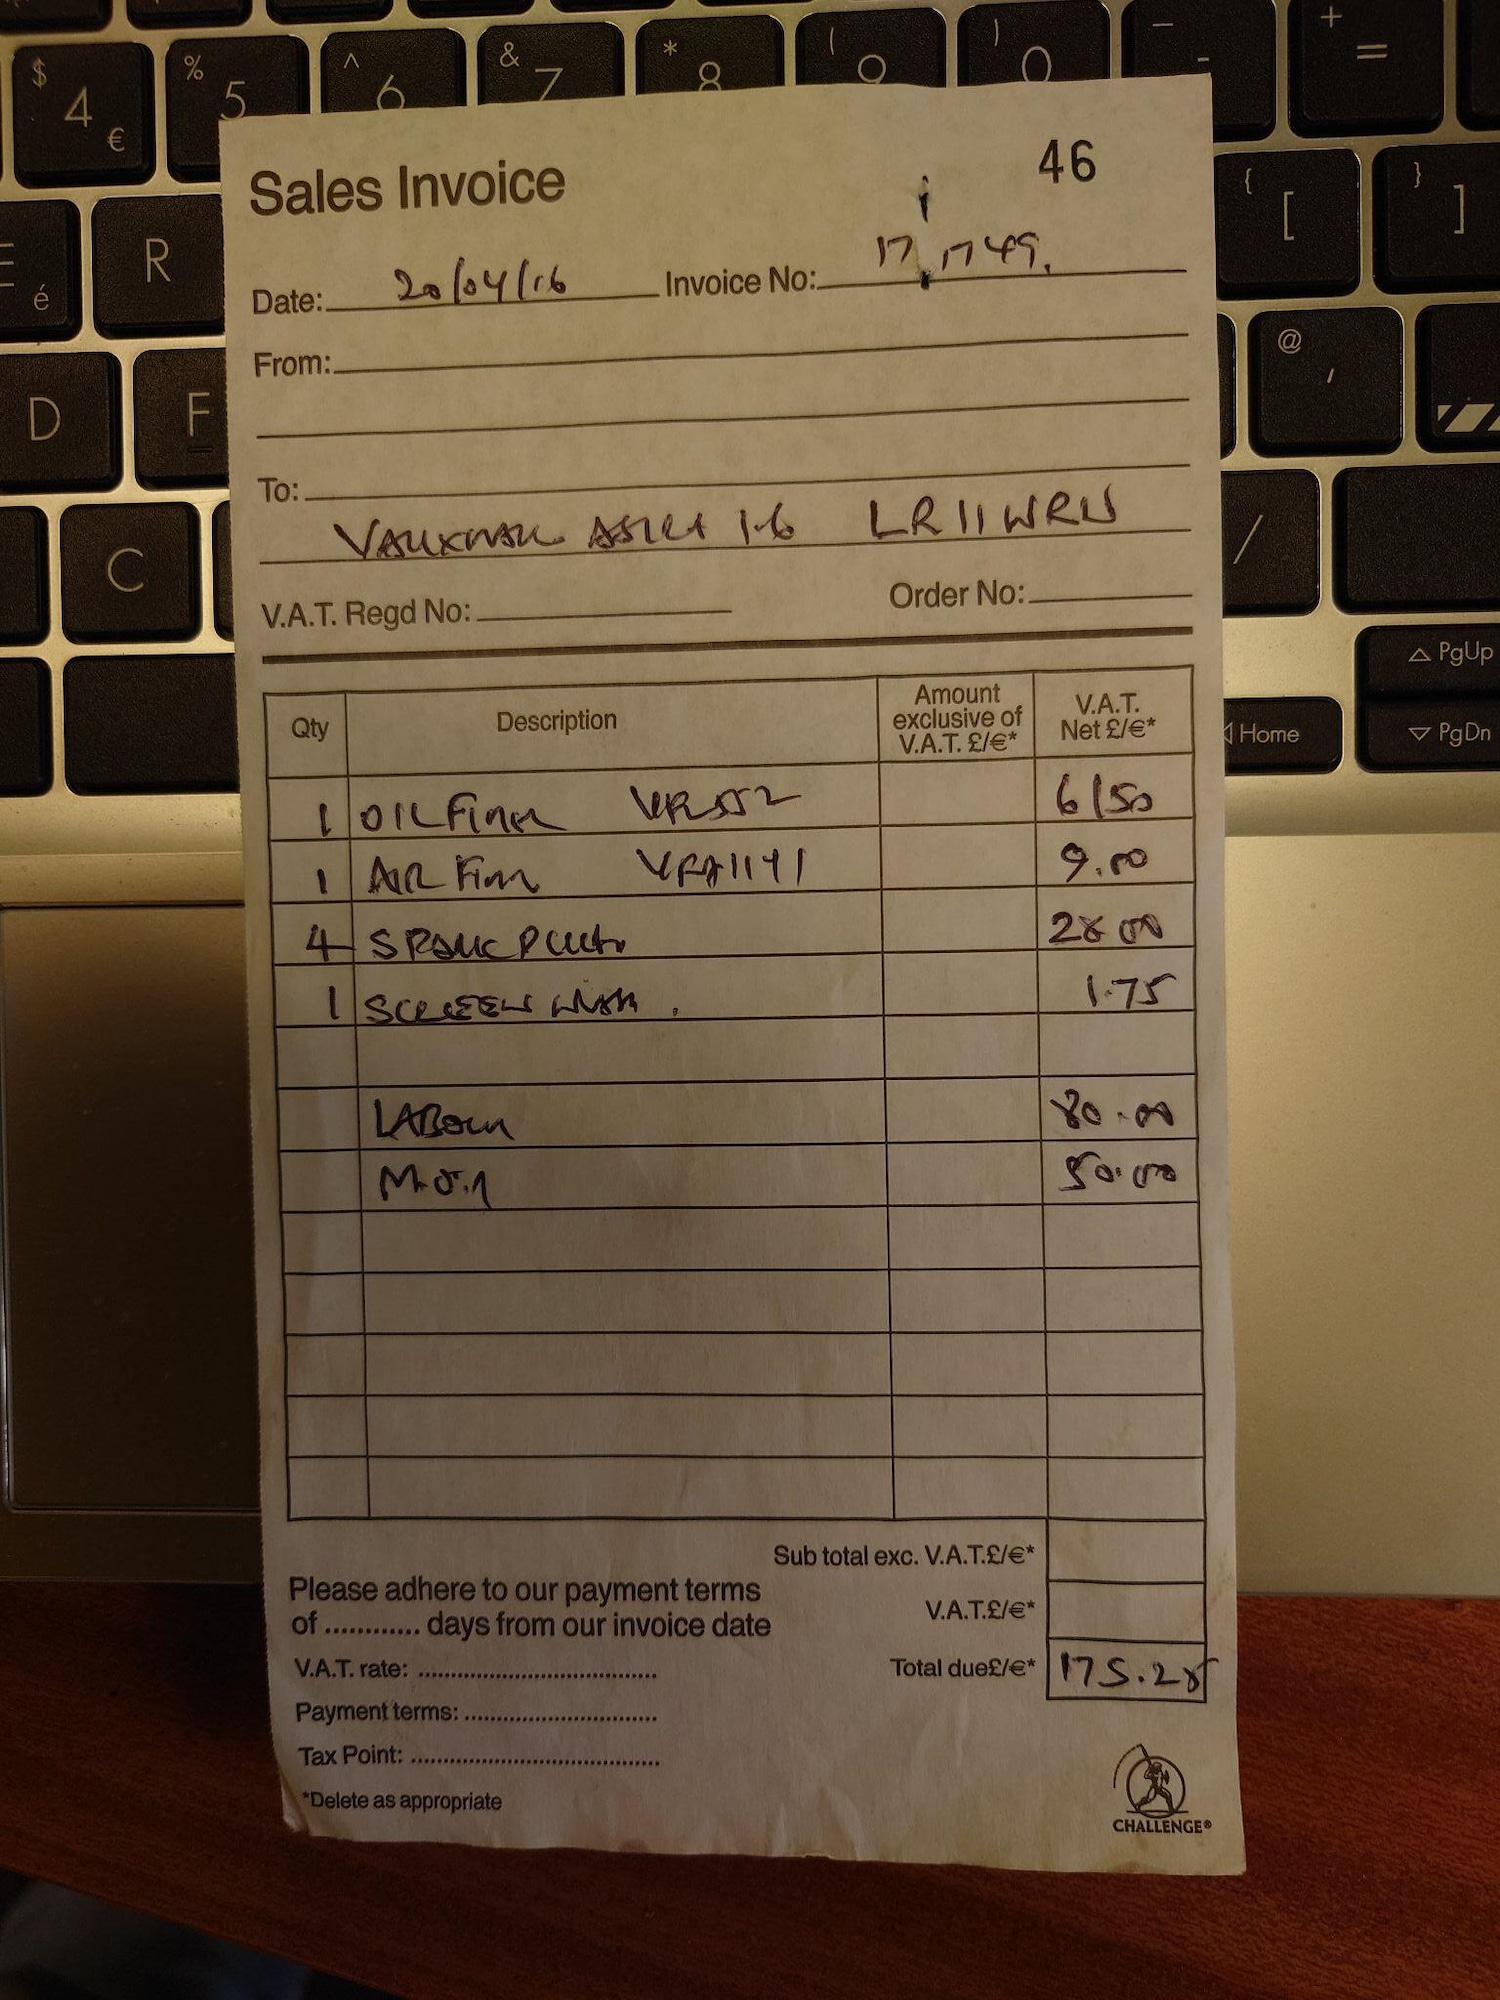 $ 4 € % 5 ^ 6 & 7 * 8 ( 9 ) 0 - + =
46
Sales Invoice
{ [ } ]
R
é
Date: 20/04/16 Invoice No: 17,1749.
From:
@ ,
D F
To:
VAUXHALL ASTRA 1.6 LR11WRU
C /
V.A.T. Regd No: Order No:
PgUp
Home PgDn
Qty Description Amount exclusive of V.A.T. £/€* V.A.T. Net £/€*
1 OIL FILTER 6/50
1 AIR FILTER 9.00
4 SPARK PLUGS 28 00
1 SCREEN WASH. 1.75
LABOUR 80.00
M.O.T 50.00
Sub total exc. V.A.T.£/€*
Please adhere to our payment terms
of ............ days from our invoice date
V.A.T.£/€*
V.A.T. rate: ..................................
Total due£/€* 175.25
Payment terms: ...........................
Tax Point: ...................................
*Delete as appropriate
CHALLENGE®